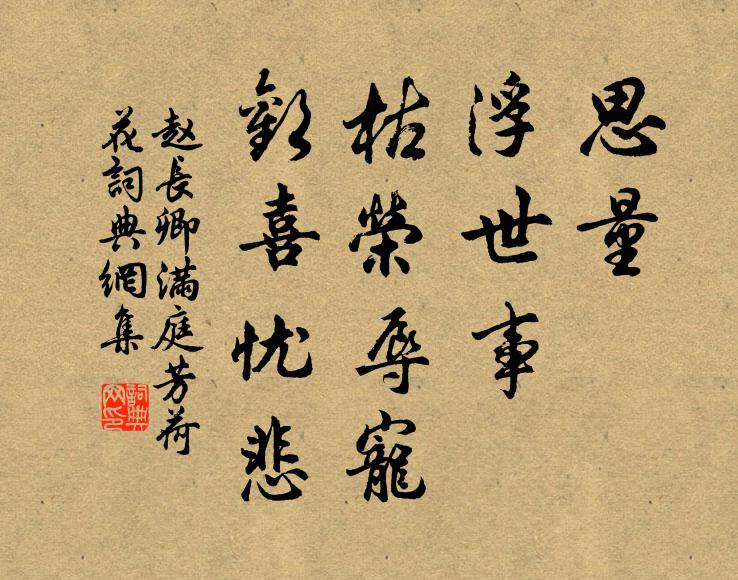 思量
浮世事
枯榮辱寵
歡喜忧悲
赵長卿满庭芳荷
花詞典網集
詞典网印